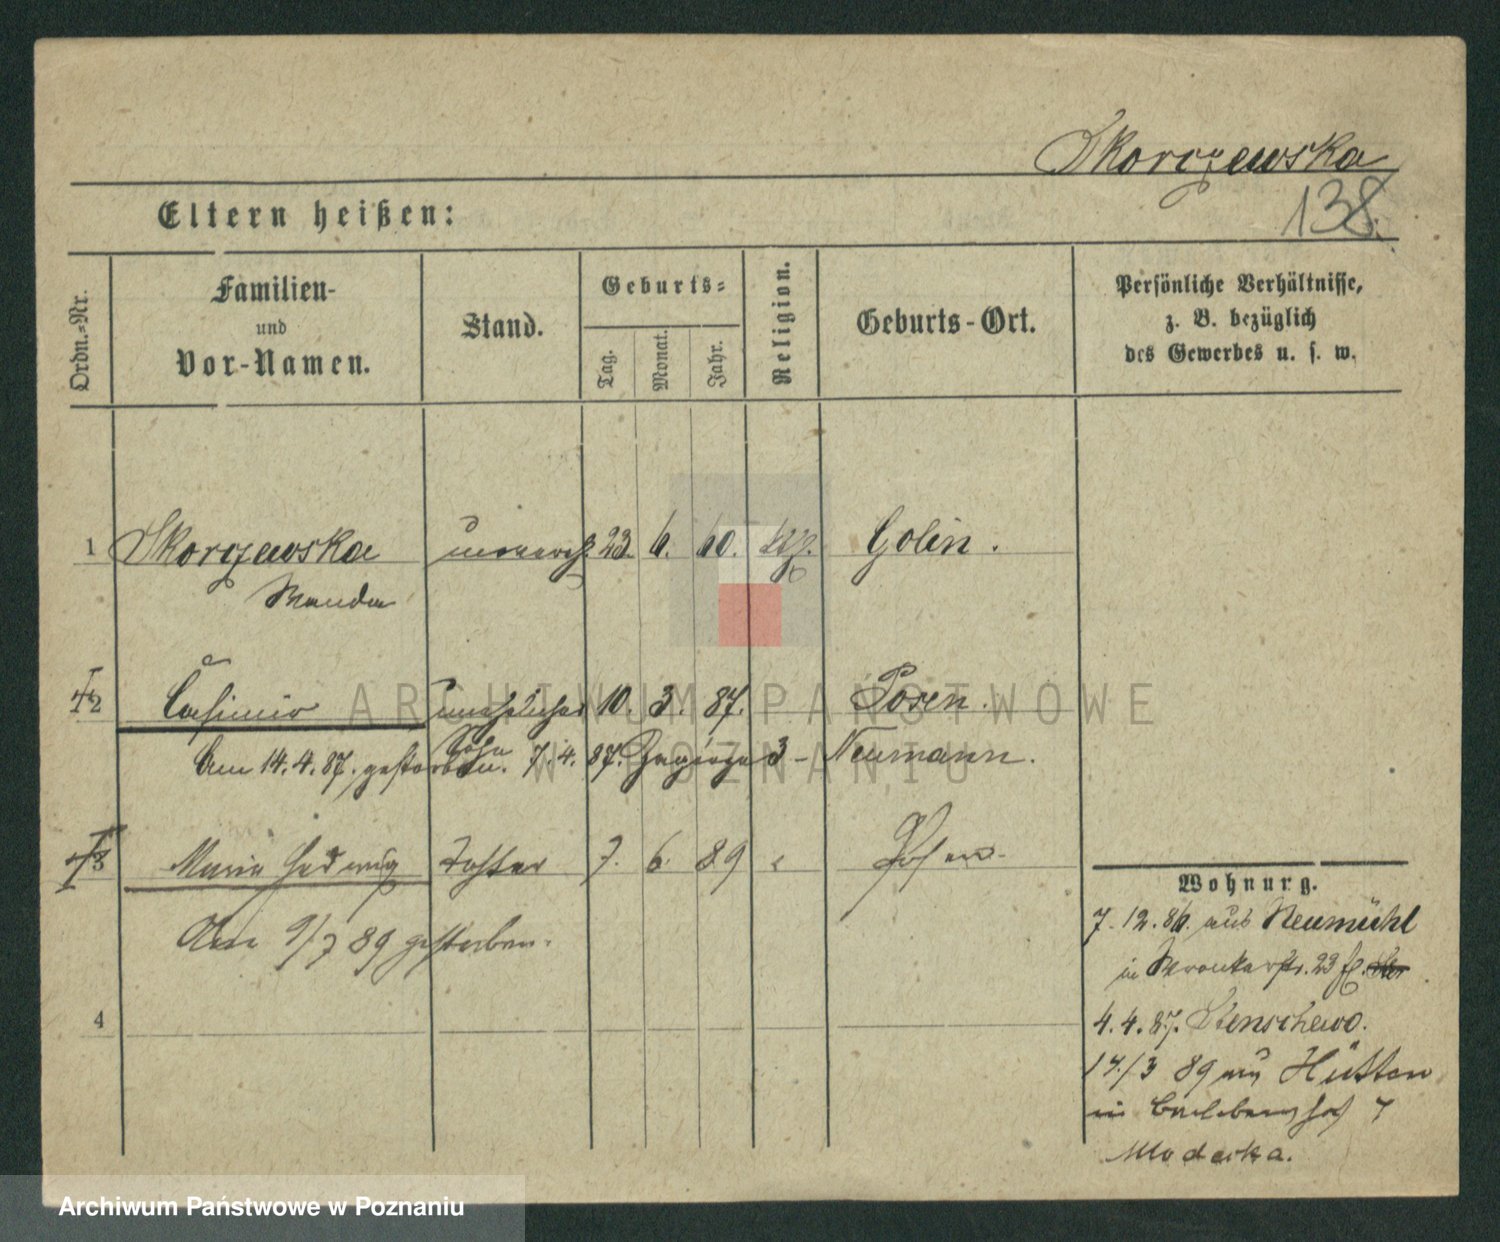 Skorzewska
138.
Eltern heißen:
Ordn.-Nr.
Familien-
und
Vor-Namen.
Stand.
Geburts-
Tag.
Monat.
Jahr.
Religion.
Geburts-Ort.
Persönliche Verhältnisse,
z. B. bezüglich
des Gewerbes u. s. w.
1 Skorzewska unverehl. 23. 6. 60. Golin.
Wanda
2 Casimir unehelicher 10. 3. 87. Posen.
Sohn
Am 14.4.87. gestorben. 7.4.87. 3- Neumann.
3 Maria Hedwig Tochter 7. 6. 89 " Posen.
Am 9/7 89 gestorben.
4
Wohnung.
7.12.86. aus Neumühl
in Wronkerstr. 23
4.4.87. Stenschewo.
17/3 89 aus Hütten
in 7
Moderka.
ARCHIWUM PAŃSTWOWE
W POZNANIU
Archiwum Państwowe w Poznaniu